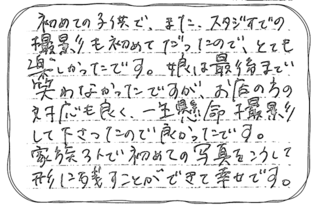 初めての子供で、また、スタジオでの
撮影も初めてだったので、とても
楽しかったです。娘は最後まで
笑わなかったですが、お店の方の
対応も良く、一生懸命撮影
して下さったので良かったです。
家族3人で初めての写真をこうして
形に残すことができて幸せです。